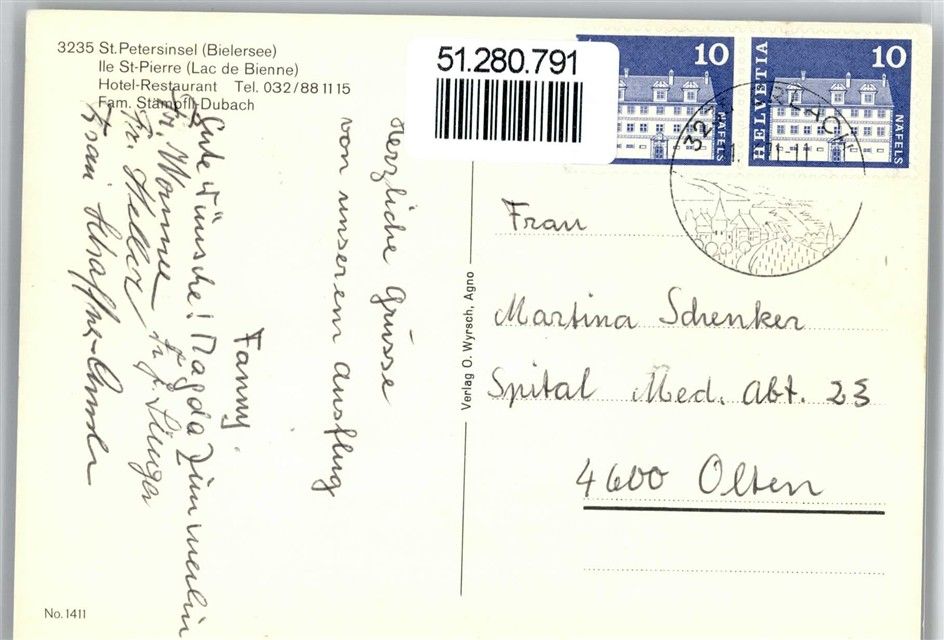 3235 St. Petersinsel (Bielersee)
Ile St-Pierre (Lac de Bienne)
Hotel-Restaurant Tel. 032/88 11 15
Fam. Stämpfli-Dubach
51.280.791
10
NÄFELS
HELVETIA
10
NÄFELS
Herzliche Grüsse
von unserem Ausflug
Fanny.
Gute Wünsche! Magda Zimmerlin
Fr.
Fr. Heller
Frau Schaffner
Verlag O. Wyrsch, Agno
Frau
Martina Schenker
Spital Med. Abt. 23
4600 Olten
No. 1411